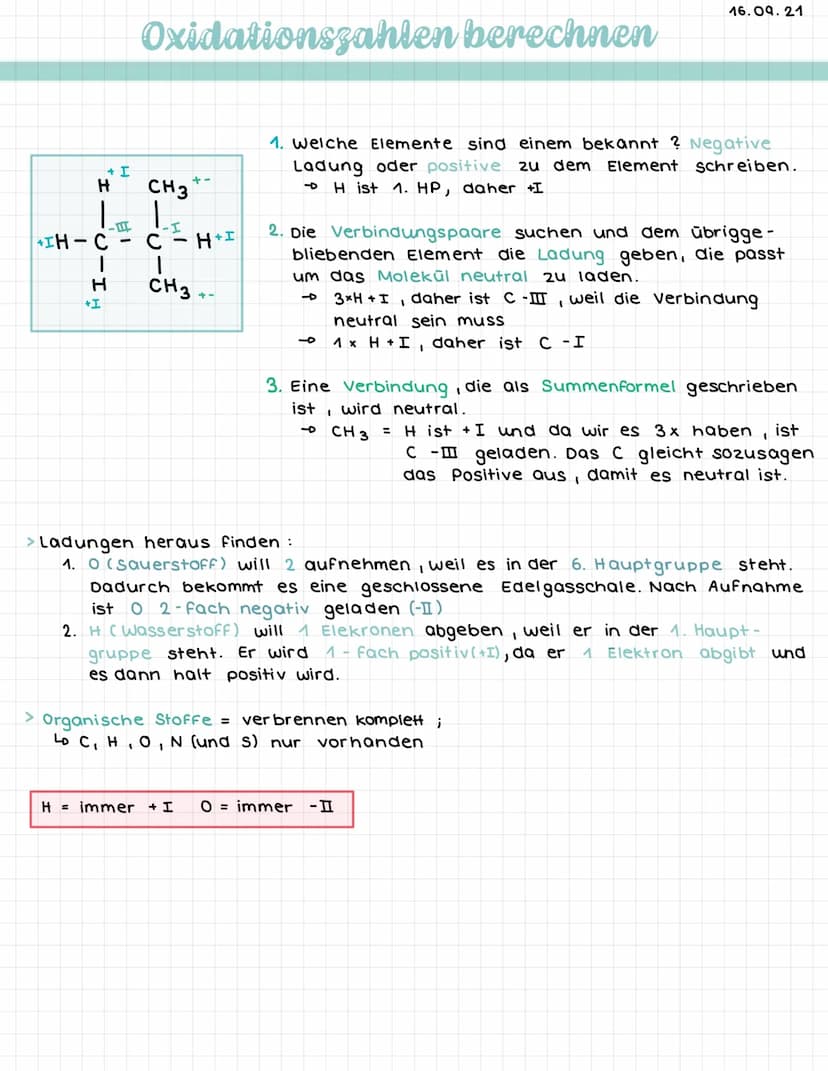 16.09.21
Oxidationszahlen berechnen
+I
H CH3 +-
-III -I
+I H - C - C - H +I
H CH3 +-
+I
1. Welche Elemente sind einem bekannt? Negative
Ladung oder positive zu dem Element schreiben.
→ H ist 1. HP, daher +I
2. Die Verbindungspaare suchen und dem übrigge-
bliebenden Element die Ladung geben, die passt
um das Molekül neutral zu laden.
→ 3×H +I, daher ist C -III, weil die Verbindung
neutral sein muss
→ 1 x H +I, daher ist C -I
3. Eine Verbindung, die als Summenformel geschrieben
ist, wird neutral.
→ CH3 = H ist +I und da wir es 3x haben, ist
C -III geladen. Das C gleicht sozusagen
das Positive aus, damit es neutral ist.
> Ladungen heraus finden:
1. O (Sauerstoff) will 2 aufnehmen, weil es in der 6. Hauptgruppe steht.
Dadurch bekommt es eine geschlossene Edelgasschale. Nach Aufnahme
ist O 2-fach negativ geladen (-II)
2. H (Wasserstoff) will 1 Elekronen abgeben, weil er in der 1. Haupt-
gruppe steht. Er wird 1-fach positiv(+I), da er 1 Elektron abgibt und
es dann halt positiv wird.
> Organische Stoffe = verbrennen komplett;
↳ C, H, O, N (und S) nur vorhanden
H = immer +I O = immer -II